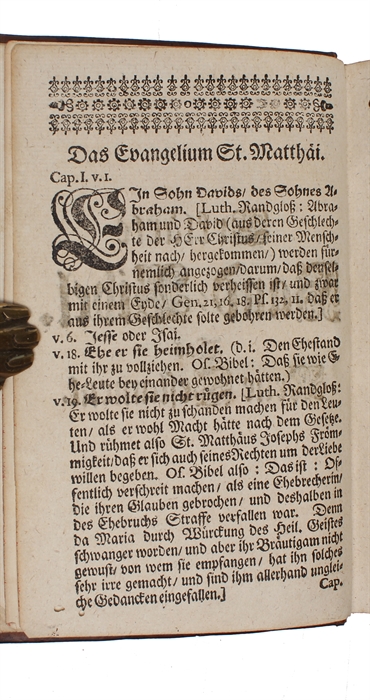 Das Evangelium St. Matthäi.
Cap. I. v. 1.
EIn Sohn Davids/ des Sohnes A-
braham. [Luth. Randgloß: Abra-
ham und David (aus deren Geschlech-
te der HErr Christus/ seiner Mensch-
heit nach/ hergekommen/) werden für-
nemlich angezogen/ darum/ daß densel-
bigen Christus sonderlich verheissen ist/ und zwar
mit einem Eyde/ Gen. 21, 16. 18. Ps. 132, 11. daß er
aus ihrem Geschlechte solte gebohren werden.]
v. 6. Jesse oder Isai.
v. 18. Ehe er sie heimholet. (d. i. Den Ehestand
mit ihr zu vollziehen. Os. Bibel: Daß sie wie E-
he-Leute bey einander gewohnet hätten.)
v. 19. Er wolte sie nicht rügen. [Luth. Randgloß:
Er wolte sie nicht zu schanden machen für den Leu-
ten/ als er wohl Macht hätte nach dem Gesetze.
Und rühmet also St. Matthäus Josephs From-
migkeit/ daß er sich auch seines Rechten um der Liebe
willen begeben. Os. Bibel also: Das ist: Of-
fentlich verschreit machen/ als eine Ehebrecherin/
die ihren Glauben gebrochen/ und deshalben in
des Ehebruchs Straffe verfallen war. Denn
da Maria durch Würckung des Heil. Geistes
schwanger worden/ und aber ihr Bräutigam nicht
gewust/ von wem sie empfangen/ hat ihn solches
sehr irre gemacht/ und sind ihm allerhand unglei-
che Gedancken eingefallen.]
Cap.